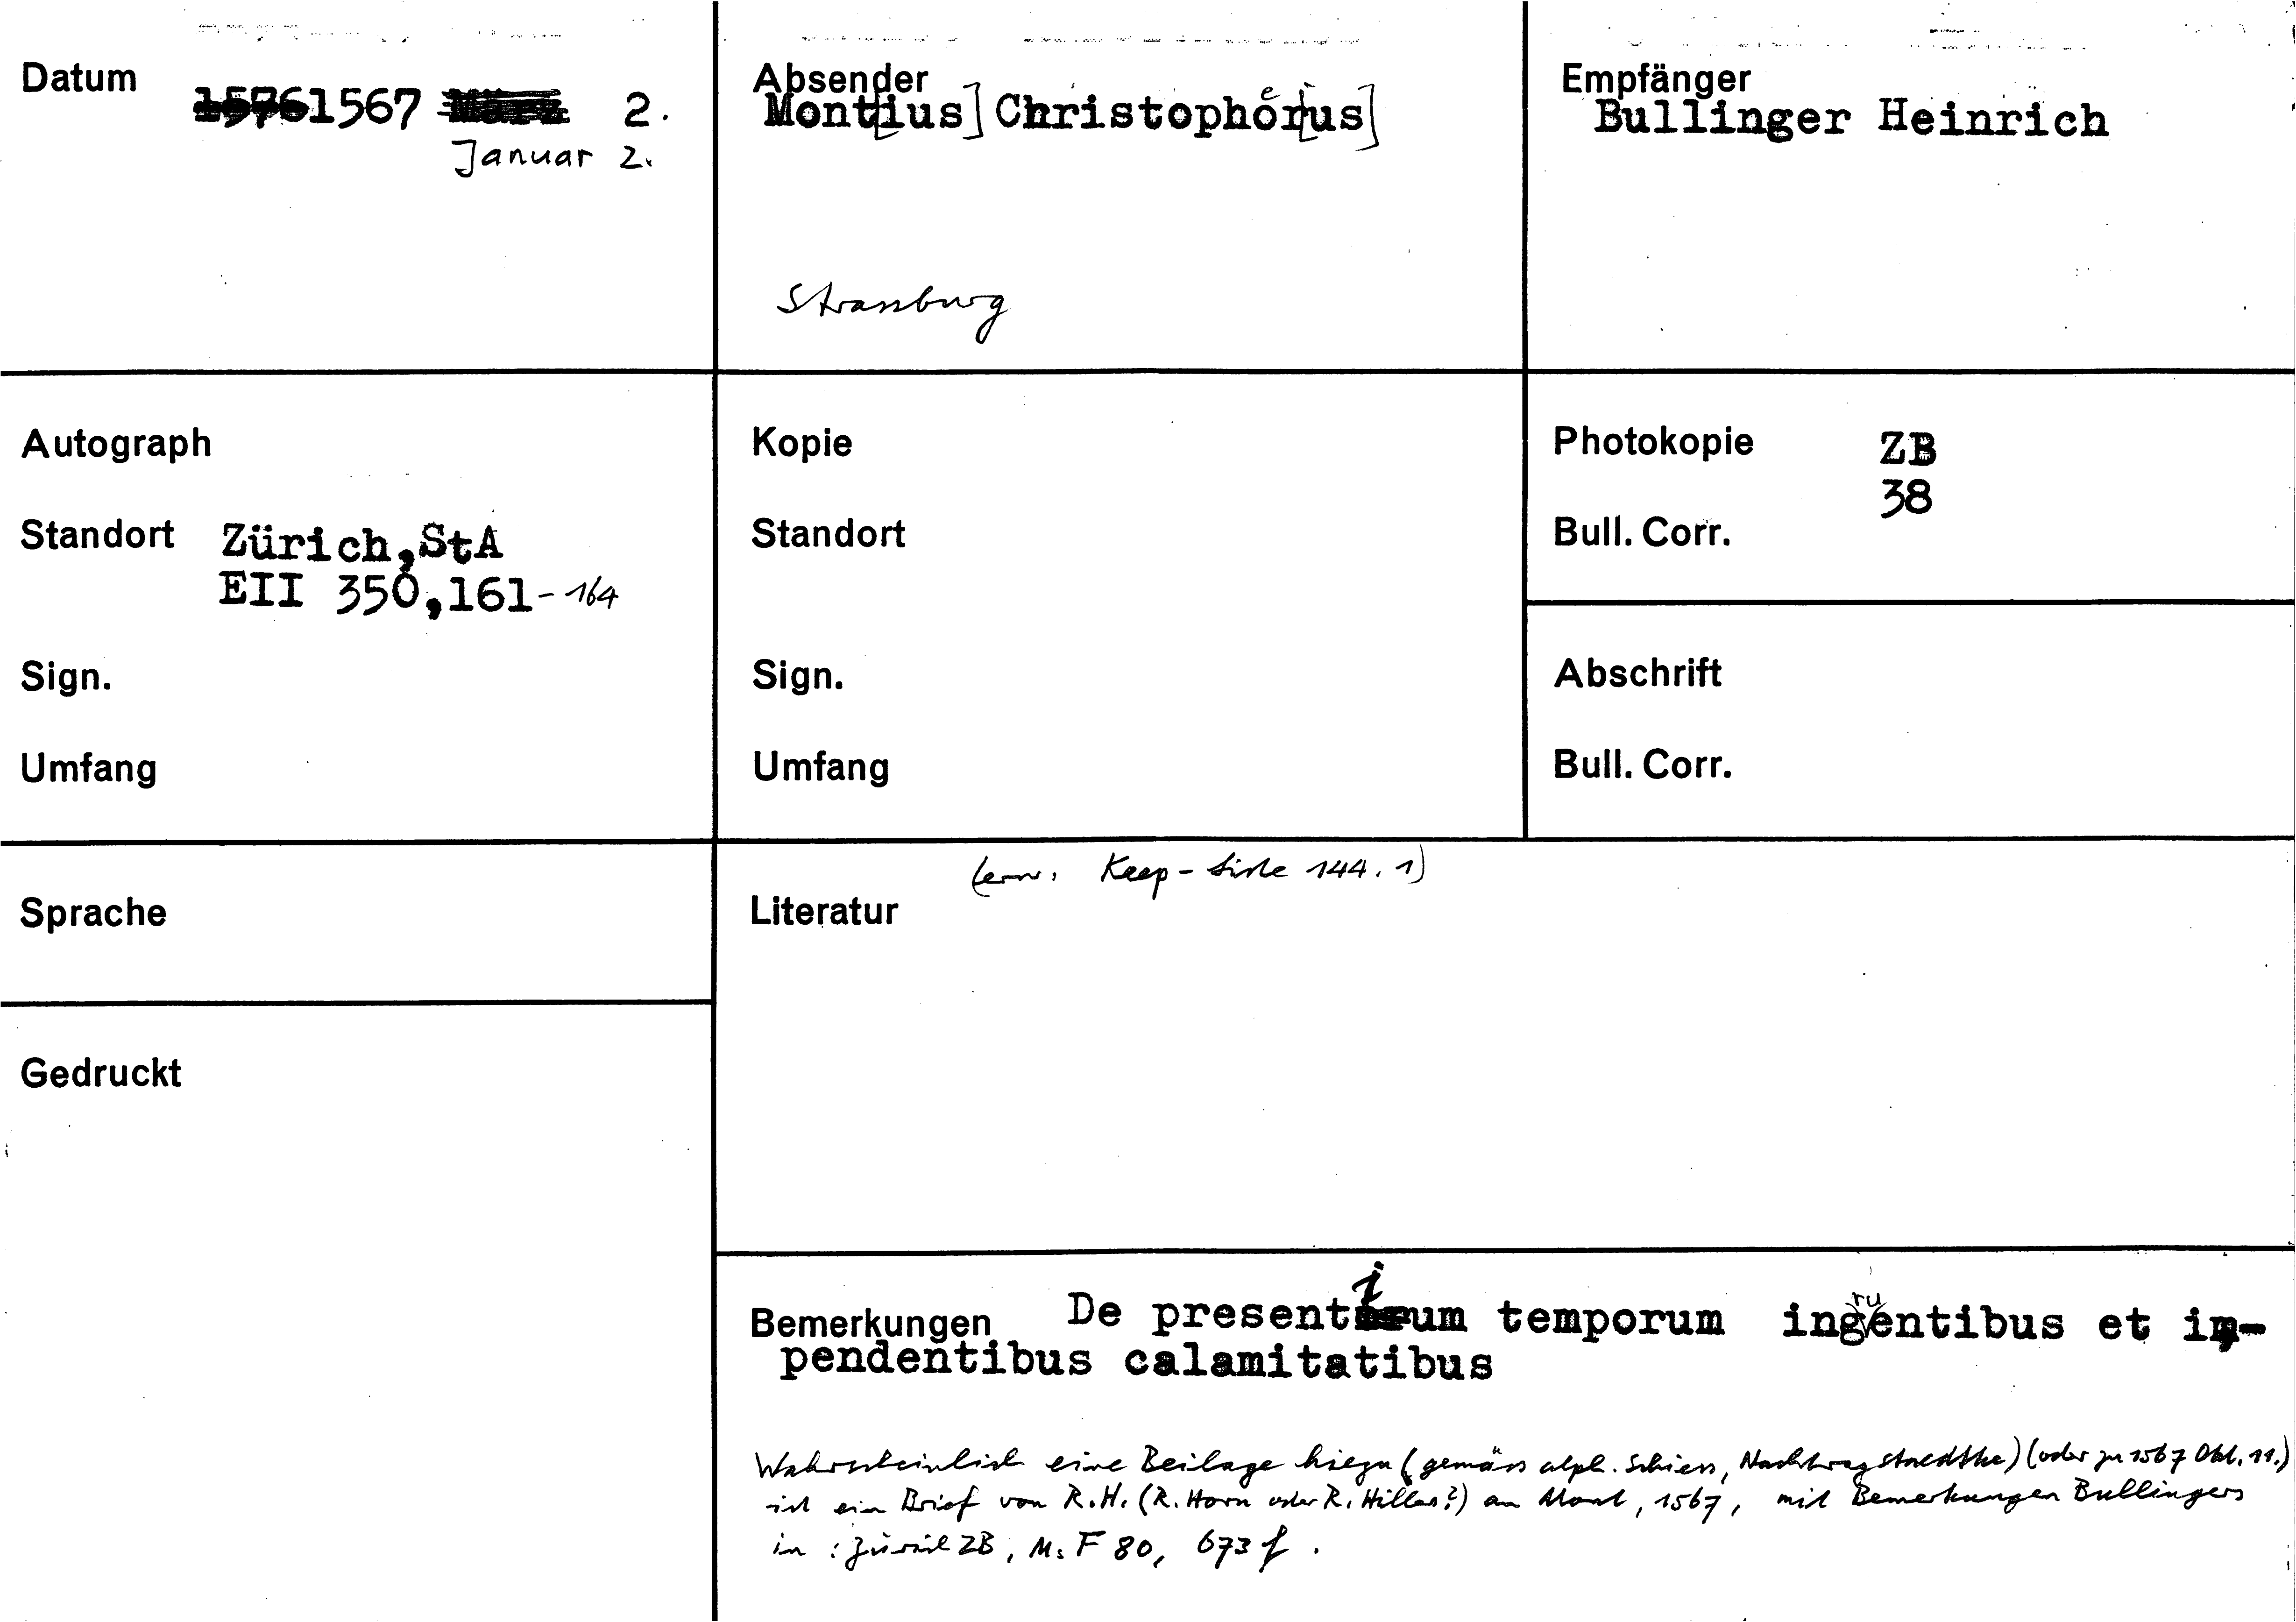 Datum
1567 2.
Januar 2.
Absender
Mont[ius] Christophor[us]
Strassburg
Empfänger
Bullinger Heinrich
Autograph
Standort Zürich,StA
EII 350,161-164
Sign.
Umfang
Kopie
Standort
Sign.
Umfang
Photokopie ZB
38
Bull. Corr.
Abschrift
Bull. Corr.
Sprache
Gedruckt
(erw. Keep-Liste 144.1)
Literatur
Bemerkungen De presentium temporum ingruentibus et im-
pendentibus calamitatibus
Wahrscheinlich eine Beilage hiezu (gemäss alph. Schiess, Nachtrag Staedtke) (oder zu 1567 Okt. 11.)
ist ein Brief von R.H. (R. Horn oder R. Hilles?) an Mont, 1567, mit Bemerkungen Bullingers
in : Zürich ZB, Ms F 80, 673 f.